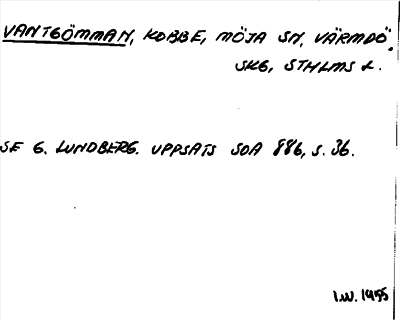 VANTGÖMMAN, KOBBE, MÖJA SN, VÄRMDÖ
SKG, STHLMS L.
SE G. LUNDBERG. UPPSATS SOA 886, S. 36.
I.W. 1955